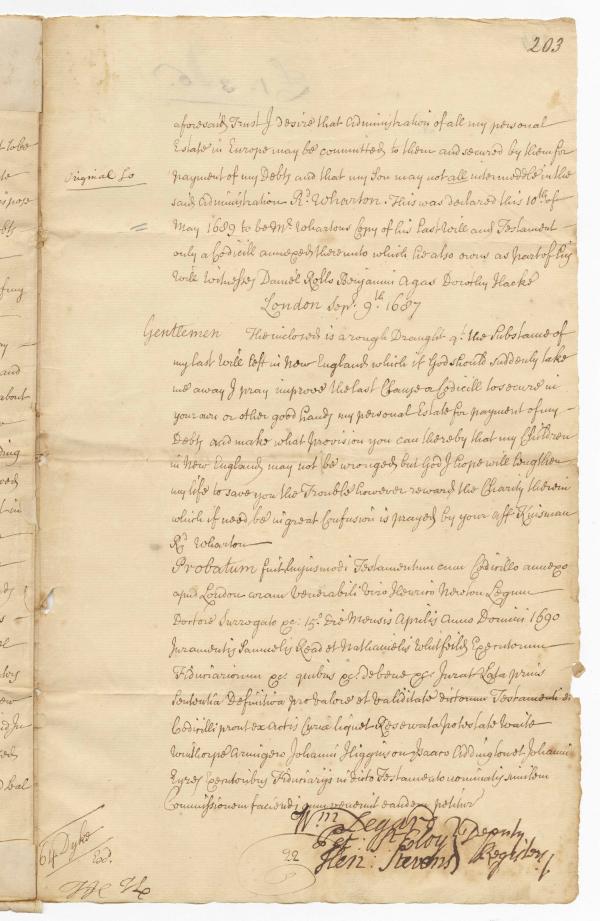 203
aforesaid Trust I desire that Administration of all my personal
Estate in Europe may be committed to them and secured by them for
Original So
payment of my Debts and that my Son may not all intermeddle in the
said Administration Rd. Wharton. This was declared this 10th of
May 1689 to be Mr. Whartons Copy of his Last Will and Testament
only a Codicill annexed thereunto which he also owns as part of his
Will Witnesses Daniel Rolls Benjamin Agas Dorothy Hacke
London Sept. 9th 1687
Gentlemen The inclosed is a rough Draught of the Substance of
my last Will left in New England which if God should suddenly take
me away I pray improve the last Clause a Codicill to secure in
your own or other good hands my personal Estate for payment of my
Debts and make what provision you can thereby that my Children
in New England may not be wronged but God I hope will lengthen
my life to save you the Trouble however reward the Charity therein
which if need be in great Confusion is prayed by your aff. Kinsman
Rd. Wharton
Probatum fuit hujusmodi Testamentum cum Codicillo annexo
apud London coram Venerabili Viro Henrico Newton Legum
Doctore Surrogato &c. 15o. Die Mensis Aprilis Anno Domini 1690
Juramentis Samuelis Read et Nathanielis Whitfeild Executorum
Fiduciariorum &c. quibus &c. de bene &c. Jurat Lata prius
Sententia Definitiva pro valore et validitate dictorum Testamenti et
Codicilli prout ex Actis Curiæ liquet Reservata potestate Waite
Winthorpe Armigero Johanni Higginson Isaaco Addington et Johanni
Eyres Executoribus Fiduciarijs in dicto Testamento nominatis similem
Commissionem faciendi cum venerint eandem petitur
Wm Legard
Pet: St Eloy Deputy
Hen: Stevens Registers
64 Dyke
Ex.
22